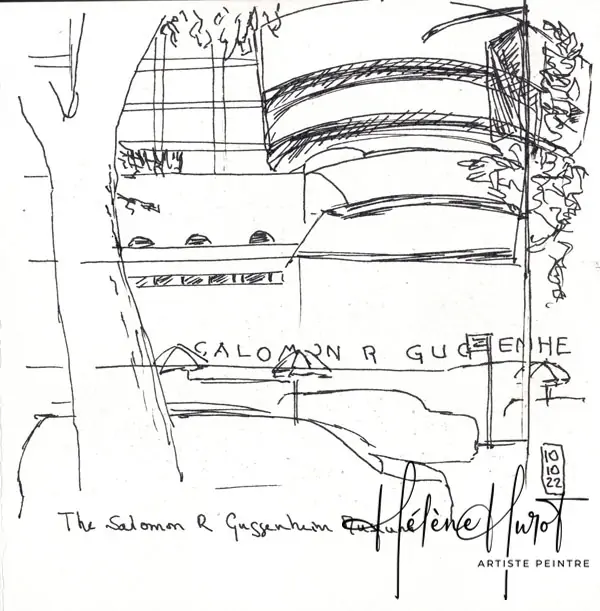 SALOMON R GUGGENHE
10
10
22
The Salomon R Guggenheim
Hélène Hurot
ARTISTE PEINTRE